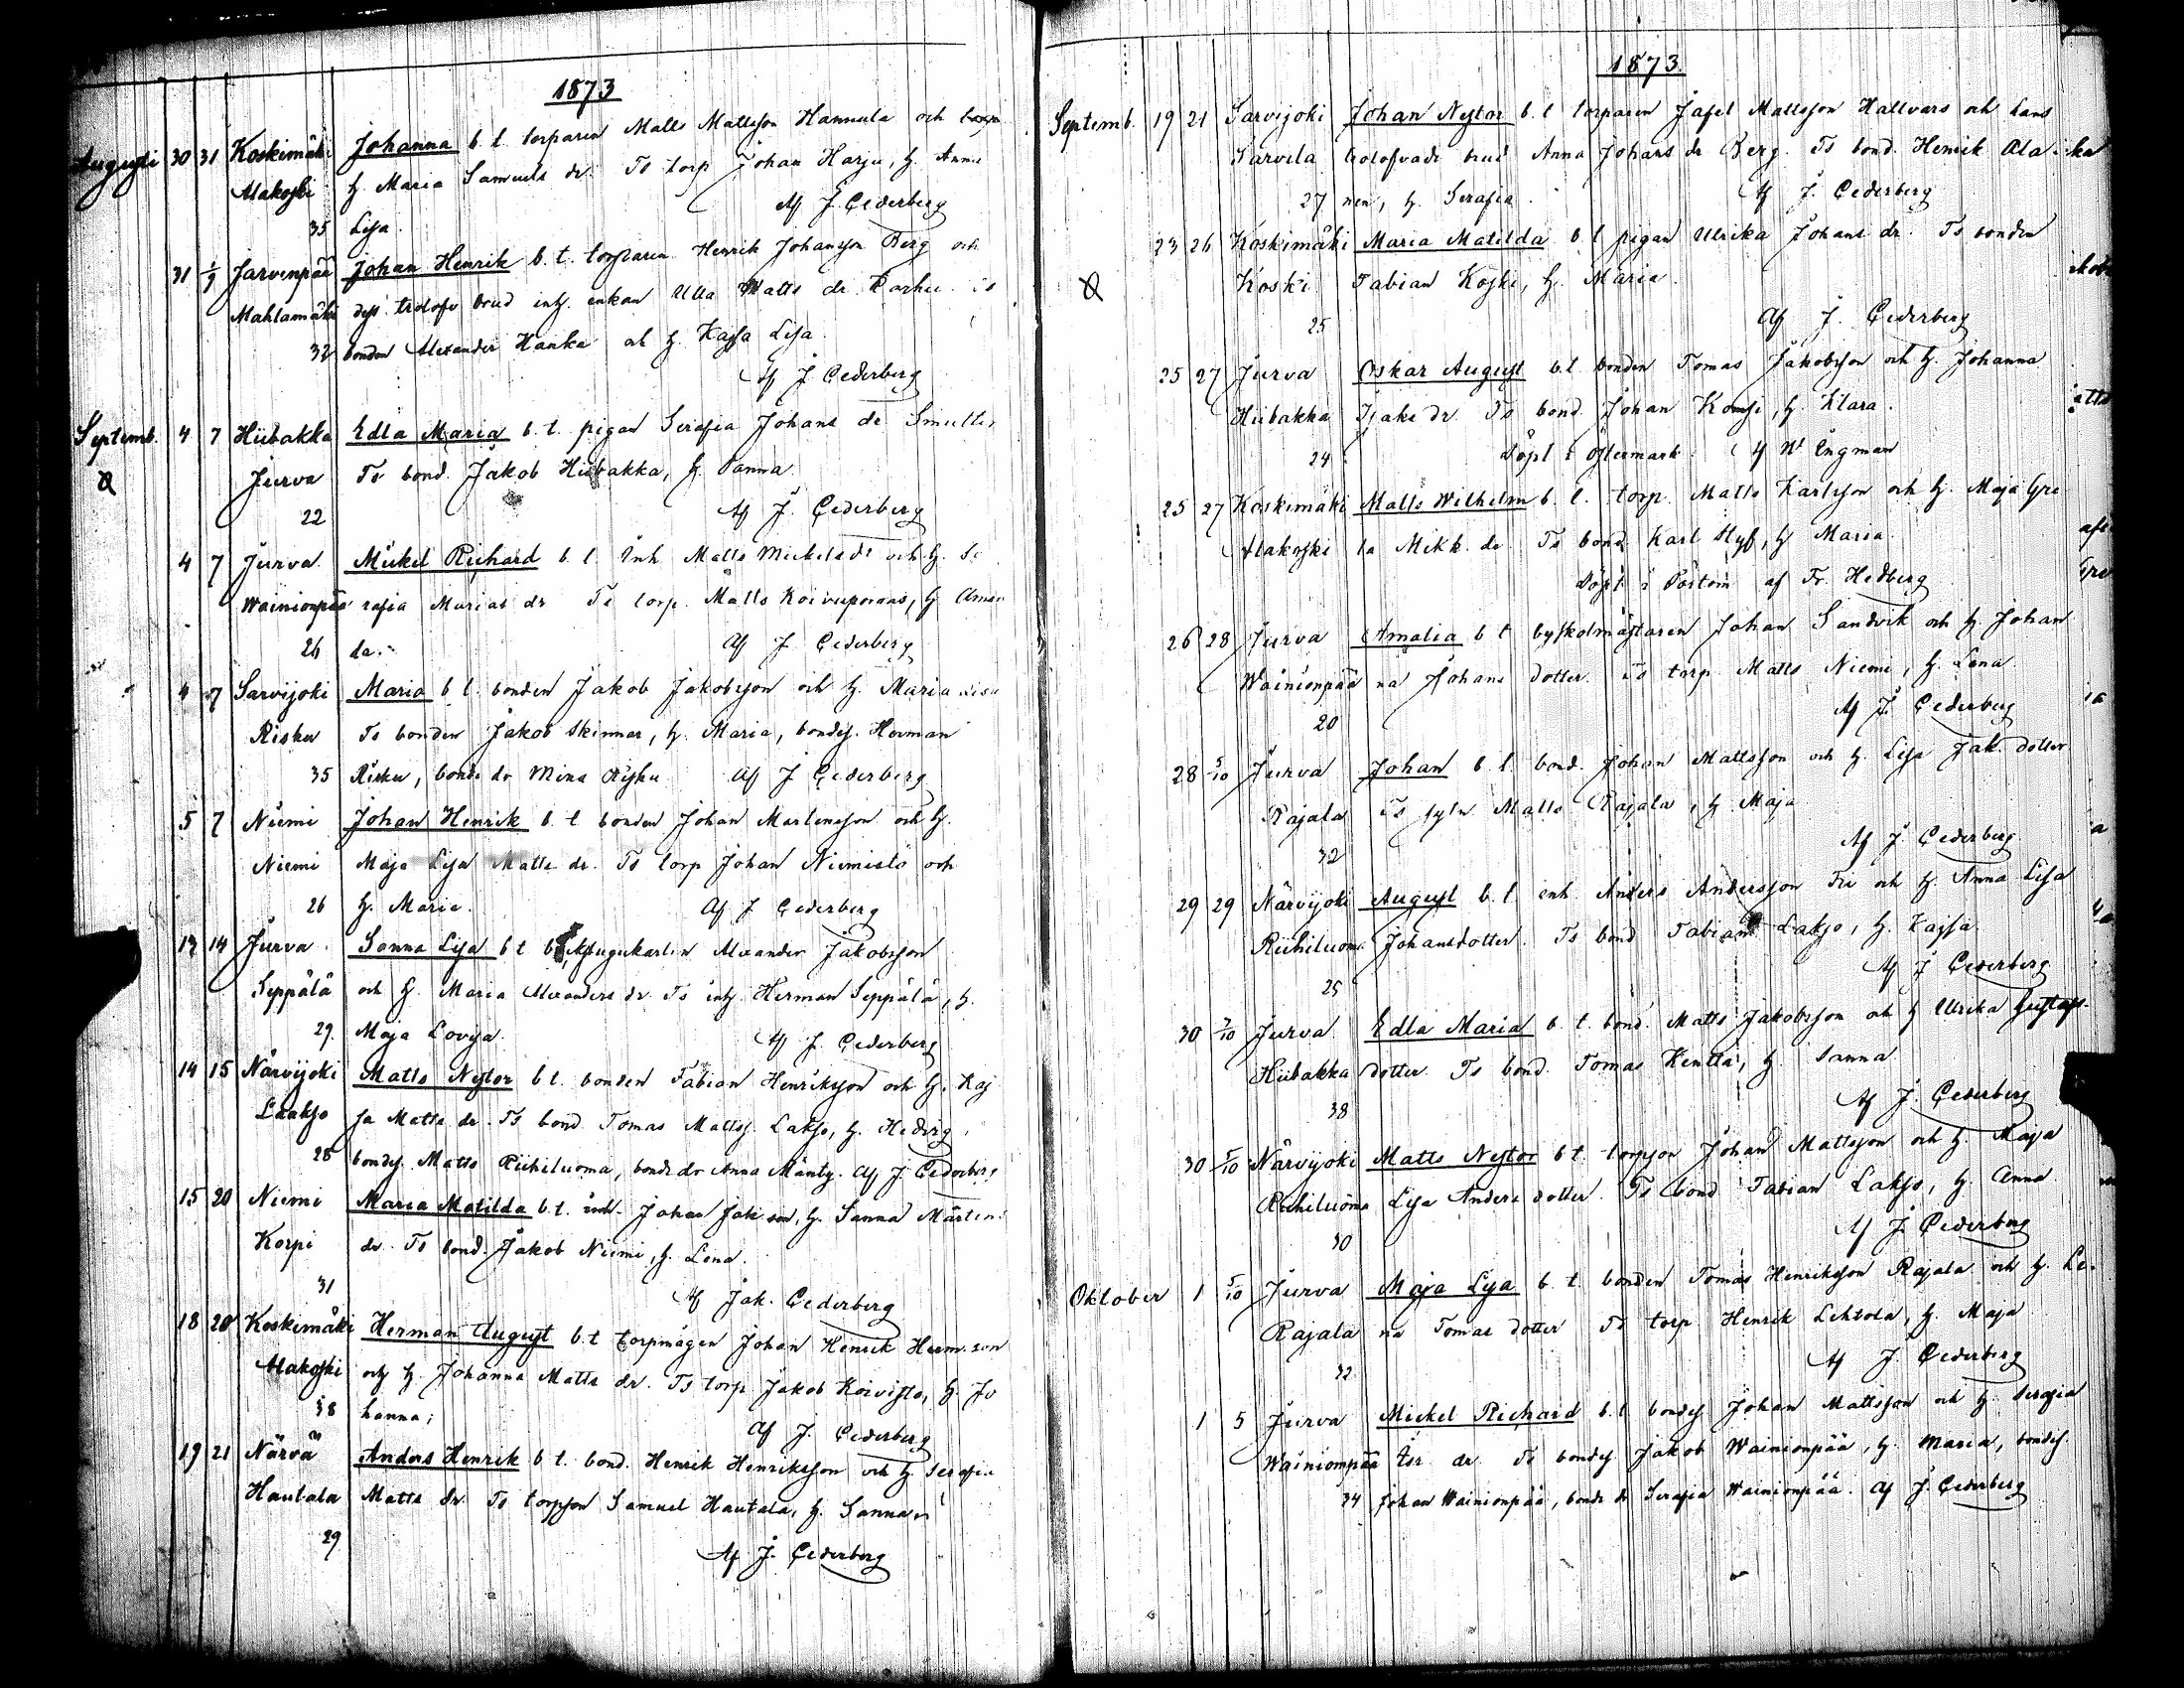 1873
Augusti 30 31 Koskimäki Johanna b. t. torparen Matts Mattsson Hannula och
Alakoski h. Maria Samuels dr. Ts torp Johan Harju, h. Anna
35 Lisa. Af J. Cederberg
31 1/9 Jarvenpää Johan Henrik b. t. torparen Henrik Johansson Berg och
Mahlamäki dess trolofv brud inh. enkan Ulla Matts dr. Karhu. Ts
32 bonden Alexander Hanka och h. Kajsa Lisa.
Af J Cederberg
Septemb. 4 7 Hiibakka Edla Maria b. t. pigan Serafia Johans dr
Jurva Ts bond. Jakob Hiibakka, h. Sanna
22 Af J. Cederberg
4 7 Jurva Mickel Richard b. t. Inh Matts Mickelsdr och h. Se
Wainionpää rafia Marias dr Ts torp. Matts Koivuporras, h Aman
26 da. Af J Cederberg
4 7 Sarvijoki Maria b t. bonden Jakob Jakobsson och h. Maria
Risku Ts bonden Jakob Skinnar, h. Maria, bondes. Herman
35 Risku, bonde dr Mina Risku Af J Cederberg
5 7 Niemi Johan Henrik b. t bonden Johan Martensson och h.
Niemi Maja Lisa Matts dr. Ts torp Johan Niemistö och
26 h. Maria. Af J Cederberg
13 14 Jurva Sanna Lisa b t backstugukarlen Alexander Jakobsson
Seppälä och h. Maria Alexanders dr. Ts inh Herman Seppälä, h.
29. Maja Lovisa. Af J. Cederberg
14 15 Närvijoki Matts Nestor b t. bonden Fabian Henriksson och h. Kaj
Laakso sa Matts dr. Ts bond Tomas Matts. Lakso, h. Hedvig,
28 bondes. Matts Riihiluoma, bonde dr Anna Mänty. Af J. Cederberg
15 20 Niemi Maria Matilda b. t. inh. Johan Jak. son, h. Sanna Mårtens
Korpi dr. Ts bond. Jakob Niemi, h. Lena.
31 Af Jak. Cederberg
18 20 Koskimäki Herman August b. t torpmågen Johan Henrik Herm. son
Alakoski och h. Johanna Matts dr. Ts torp Jakob Koivisto, h. Jo
38 hanna; Af J. Cederberg
19 21 Närvä Anders Henrik b t. bond. Henrik Henriksson och h Serafia
Hautala Matts dr. Ts torpson Samuel Hautala, h. Sanna
29 Af J. Cederberg
1873.
Septemb. 19 21 Sarvijoki Johan Nestor b. t torparen Jafet Mattsson Hallvars och hans
Sarvela trolofvade brud Anna Johans dr Berg. Ts bond. Henrik Ala-
27 nen, h. Serafia. Af J. Cederberg
23 26 Koskimäki Maria Matilda b. t pigan Ulrika Johans dr. Ts bonden
Koski Fabian Koski, h. Maria
25 Af J. Cederberg
25 27 Jurva Oskar August b. t. bonden Tomas Jakobsson och h. Johanna
Hiibakka Isaks dr. Ts bond. Johan Komsi, h. Klara.
24 Döpt i Östermark Af W Engman
25 27 Koskimäki Matts Wilhelm b. t. torp. Matts Karlsson och h. Maja Gre
Alakoski ta Mikk. dr. Ts bond Karl Hyf, h Maria.
Döpt i Pörtom af Fr. Hedberg
26 28 Jurva Amalia b t byskolmästaren Johan Sandvik och h Johan
Wainionpää na Johans dotter. Ts torp Matts Niemi, h. Lena.
20 Af J. Cederberg
28 5/10 Jurva Johan b. t. bond. Johan Mattsson och h. Lisa Jak. dotter
Rajala Ts sytn Matts Rajala, h. Maja
32 Af J. Cederberg
29 29 Närvijoki August b. t. inh Anders Andersson Fri och h. Anna Lisa
Riihiluoma Johansdotter. Ts bond Fabian Lakso, h. Kajsa
25 Af J Cederberg
30 7/10 Jurva Edla Maria b. t. bond. Matts Jakobsson och h Ulrika Gustafs-
Hiibakka dotter. Ts bond. Tomas Henttä, h. Sanna
38 Af J. Cederberg
30 5/10 Närvijoki Matts Nestor b t. torpson Johan Mattsson och h. Maja
Riihiluoma Lisa Anders dotter. Ts bond Fabian Lakso, h. Anna
30 Af J Cederberg
Oktober 1 5/10 Jurva Maja Lisa b. t. bonden Tomas Henriksson Rajala och h. Le-
Rajala na Tomas dotter Ts torp. Henrik Lehtola, h. Maja
32 Af J. Cederberg
1 5 Jurva Mickel Richard b. t bondes Johan Mattsson och h Serafia
Wainionpää Isr. dr. Ts bondes Jakob Wainionpää, h. Maria, bondes.
34 Johan Wainionpää, bonde dr Serafia Wainionpää. Af J. Cederberg